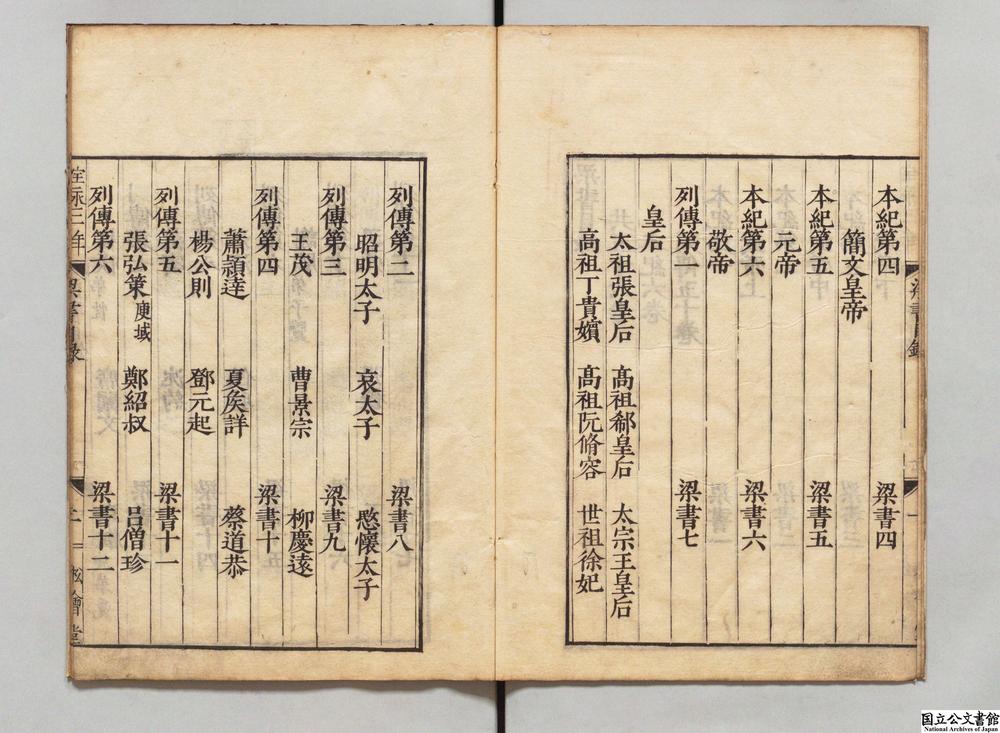 本紀第四 梁書四
簡文皇帝
本紀第五 梁書五
元帝
本紀第六 梁書六
敬帝
列傳第一 梁書七
皇后
太祖張皇后 髙祖郗皇后 太宗王皇后
高祖丁貴嬪 髙祖阮脩容 世祖徐妃
梁書目錄
一
列傳第二 梁書八
昭明太子 哀太子 愍懷太子
列傳第三 梁書九
王茂 曹景宗 柳慶遠
列傳第四 梁書十
蕭頴達 夏矦詳 蔡道恭
列傳第五 梁書十一
楊公則 鄧元起
張弘策 庾域 鄭紹叔 吕僧珍
列傳第六 梁書十二
梁書目录
二
国立公文書館
National Archives of Japan